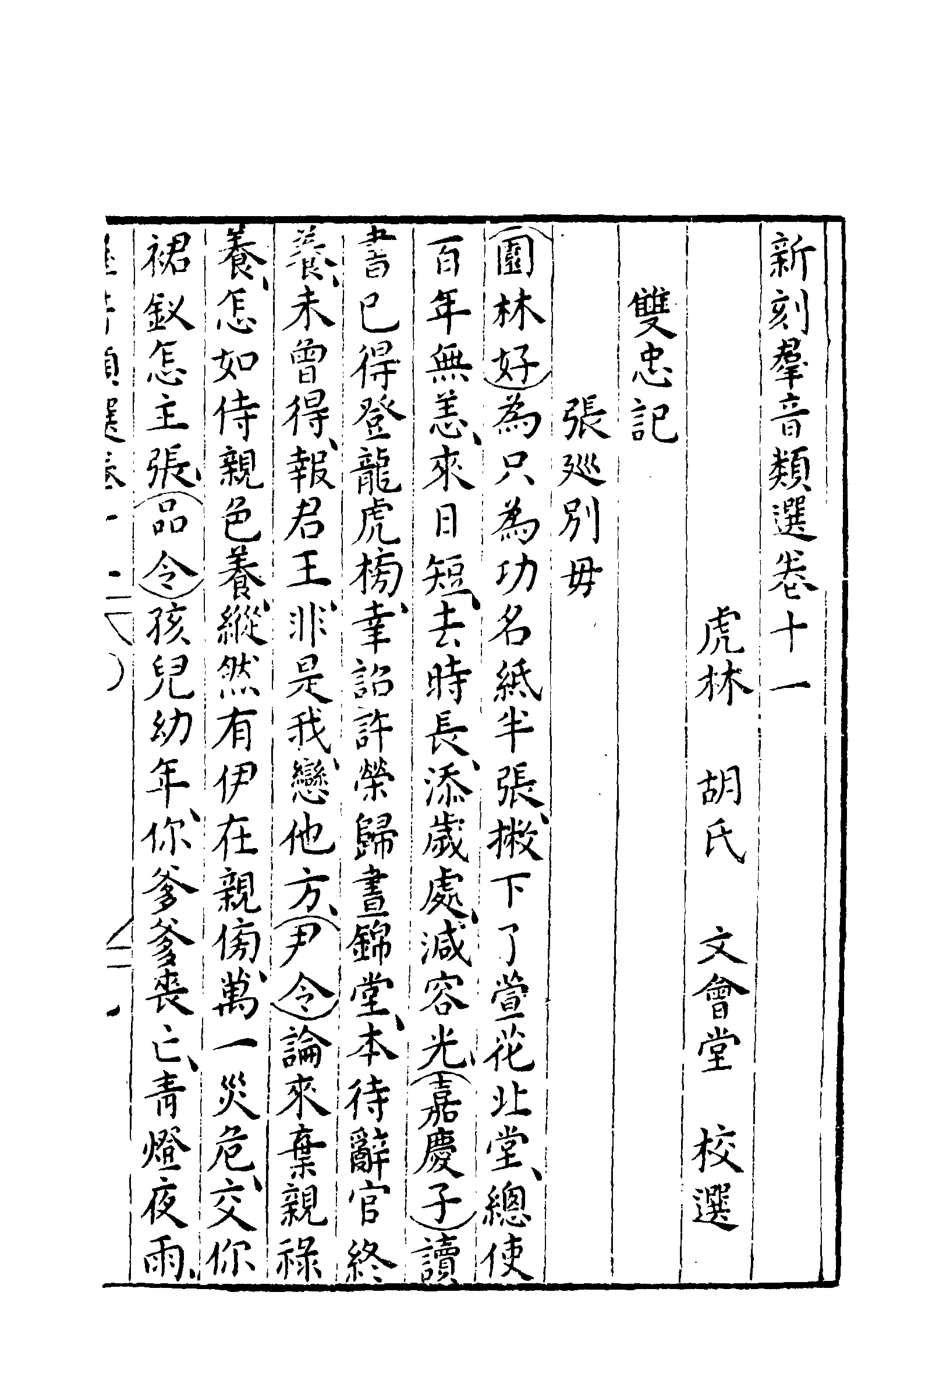 新刻羣音類選卷十一
虎林 胡氏 文會堂 校選
雙忠記
張廵別毋
園林好為只為功名紙半張、撇下了萱花北堂、總使
百年無恙、來日短、去時長、添歲處、減容光、嘉慶子讀
書已得登龍虎榜、幸詔許榮歸晝錦堂、本待辭官終
養、未曾得、報君王、非是我、戀他方、尹令論來棄親祿
養、怎如侍親色養、縱然有伊在親傍、萬一災危、交你
裙釵怎主張、品令孩兒幼年、你爹爹喪亡、青燈夜雨、
類選卷十一